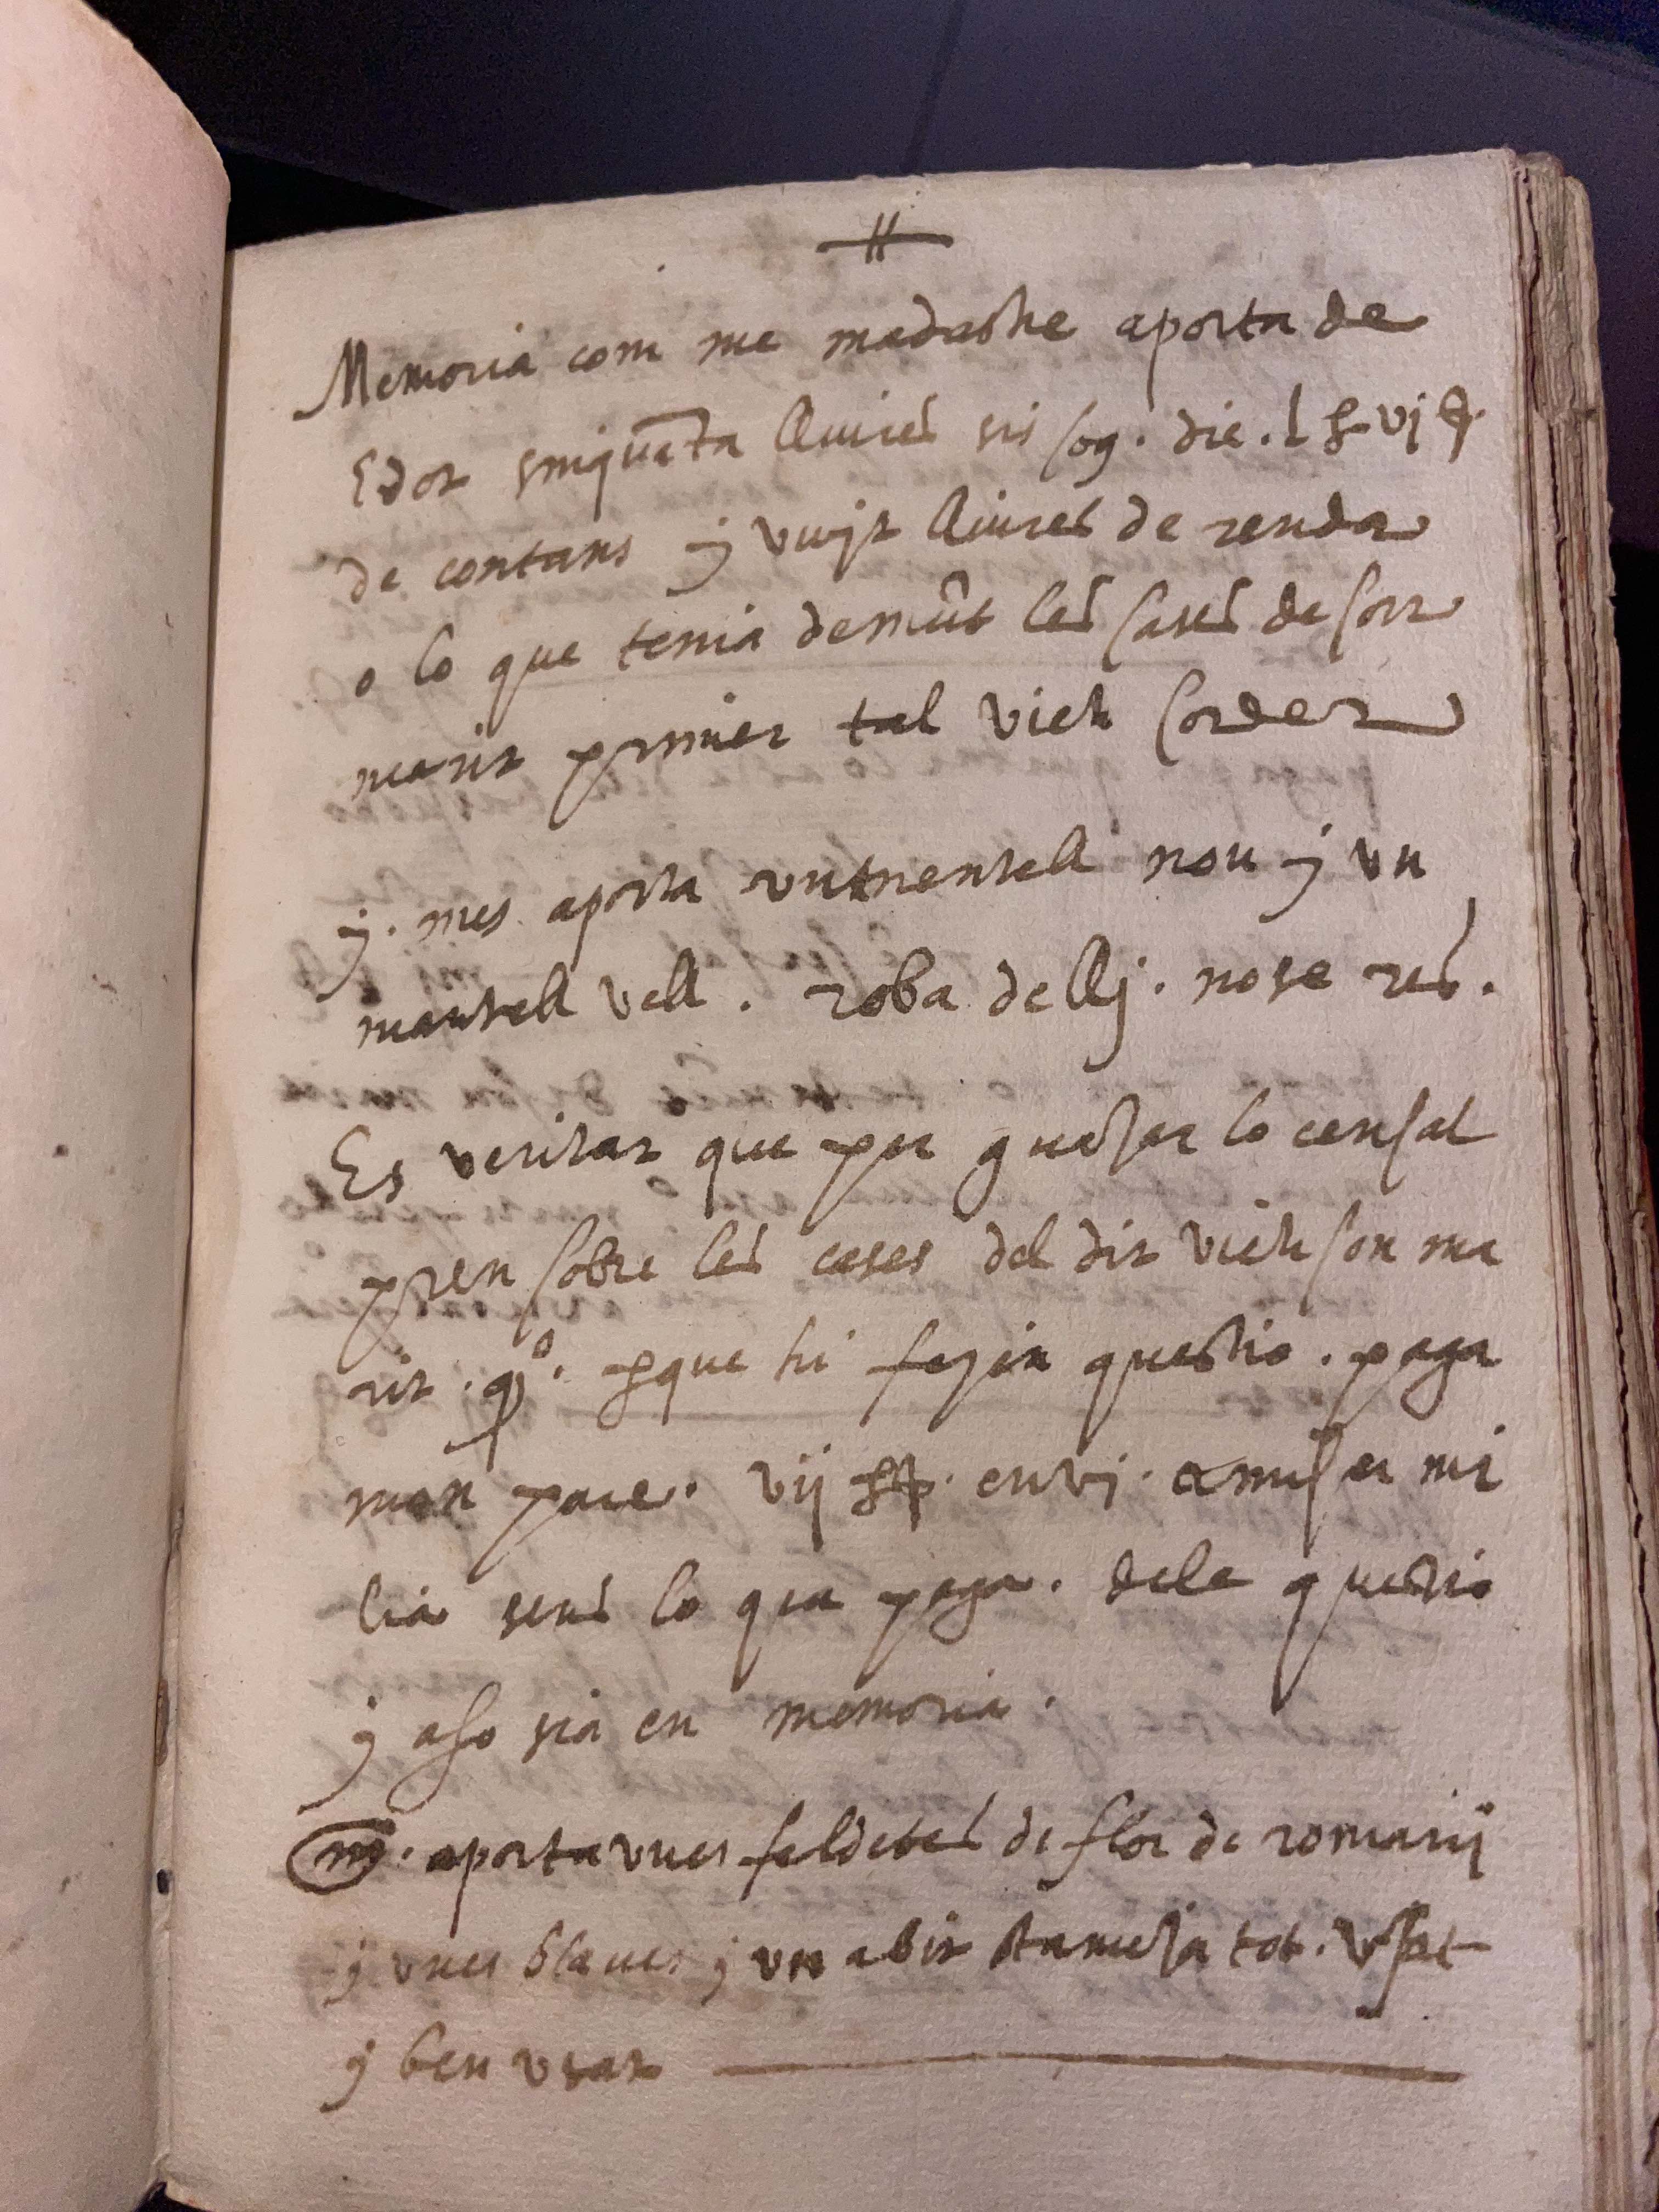 Memoria com ma madastre aporta de
E dot sinquāta lliures sis sog. die. l ll vj ß.
de contans y vuyt lliures de renda
o lo que tenia demūt les cases de son
marit primer tal vich corder
y. mes aporta vn mentell nou y vn
mantell vell. roba de llj. no se res.
Es veritat que per quesar lo censal
pren sobre les cases del dit vich son ma
rit. qo. perque hi feyin questio. paga
mon pare. vij en vj. a miser mi
lia sens lo que paga. dela questio
y aso sia en memoria.
mj. aporta vnes faldetes de flor de romanij
y vnes blaues y vn abit stameja tot. vsat
y ben vsat